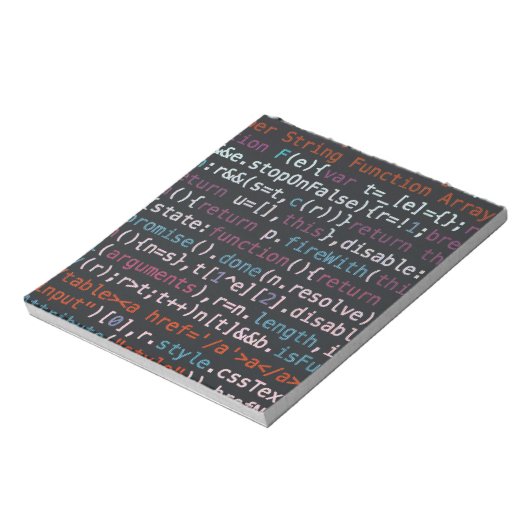 er String Function Array
ion F(e){var t=_[e]={};
&&e.stopOnFalse){r=!1;bre
;r&&(s=t,c(r))}return th
turn u=[],this},disable:
(){return p.fireWith(thi
state:function(){return
romise().done(n.resolve)
(){n=s},t[1^e][2].disabl
(arguments),r=n.length,i
(r);r>t;t++)n[t]&&b.isFu
/table><a href='/a'>a</a>
input")[0],r.style.cssTex